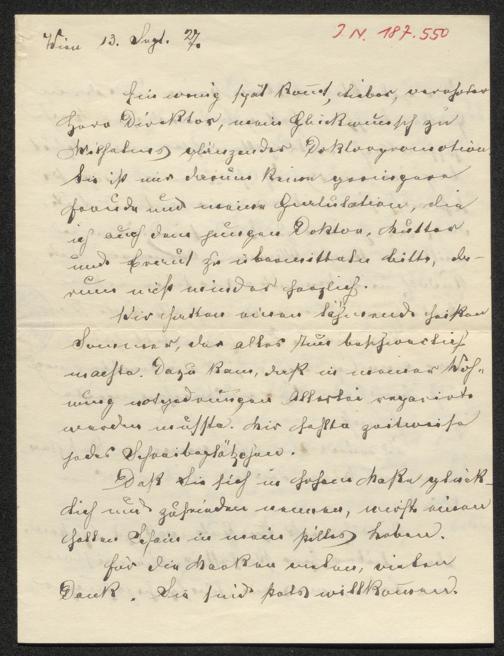 Wien 13. Sept. 27.
I. N. 187.550
Ein wenig spät kom̄t, lieber, verehrter
Herr Direktor, mein Glückwunsch zu
Wilhelms glänzender Doktorpromotion
Sie ist mir darum keine geringere
Freude und meine Gratulation, die
ich auch dem jungen Doktor, Mutter
und Braut zu übermitteln bitte, da-
rum nicht minder herzlich.
Wir hatten einen lähmend heißen
Sommer, der alles Tun beschwerlich
machte. Dazu kam, daß in meiner Woh-
nung notgedrungen allerlei repariert
werden mußte. Mir fehlte zeitweise
jedes Schreibeplätzchen.
Daß Sie sich in hohem Maße glück-
lich und zufrieden nennen, wirft einen
hellen Schein in mein stilles Leben.
Für die Marken vielen, vielen
Dank. Sie sind stets willkom̄en.